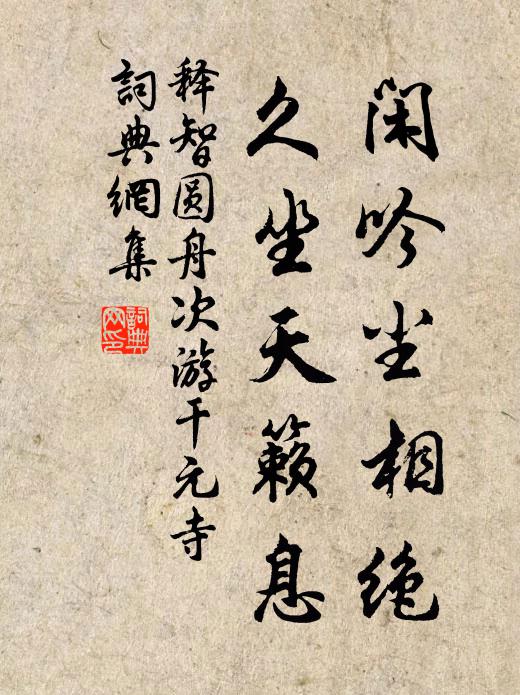 闲吟尘相绝
久坐天籁息
释智圆舟次游干元寺
詞典網集
詞典网印